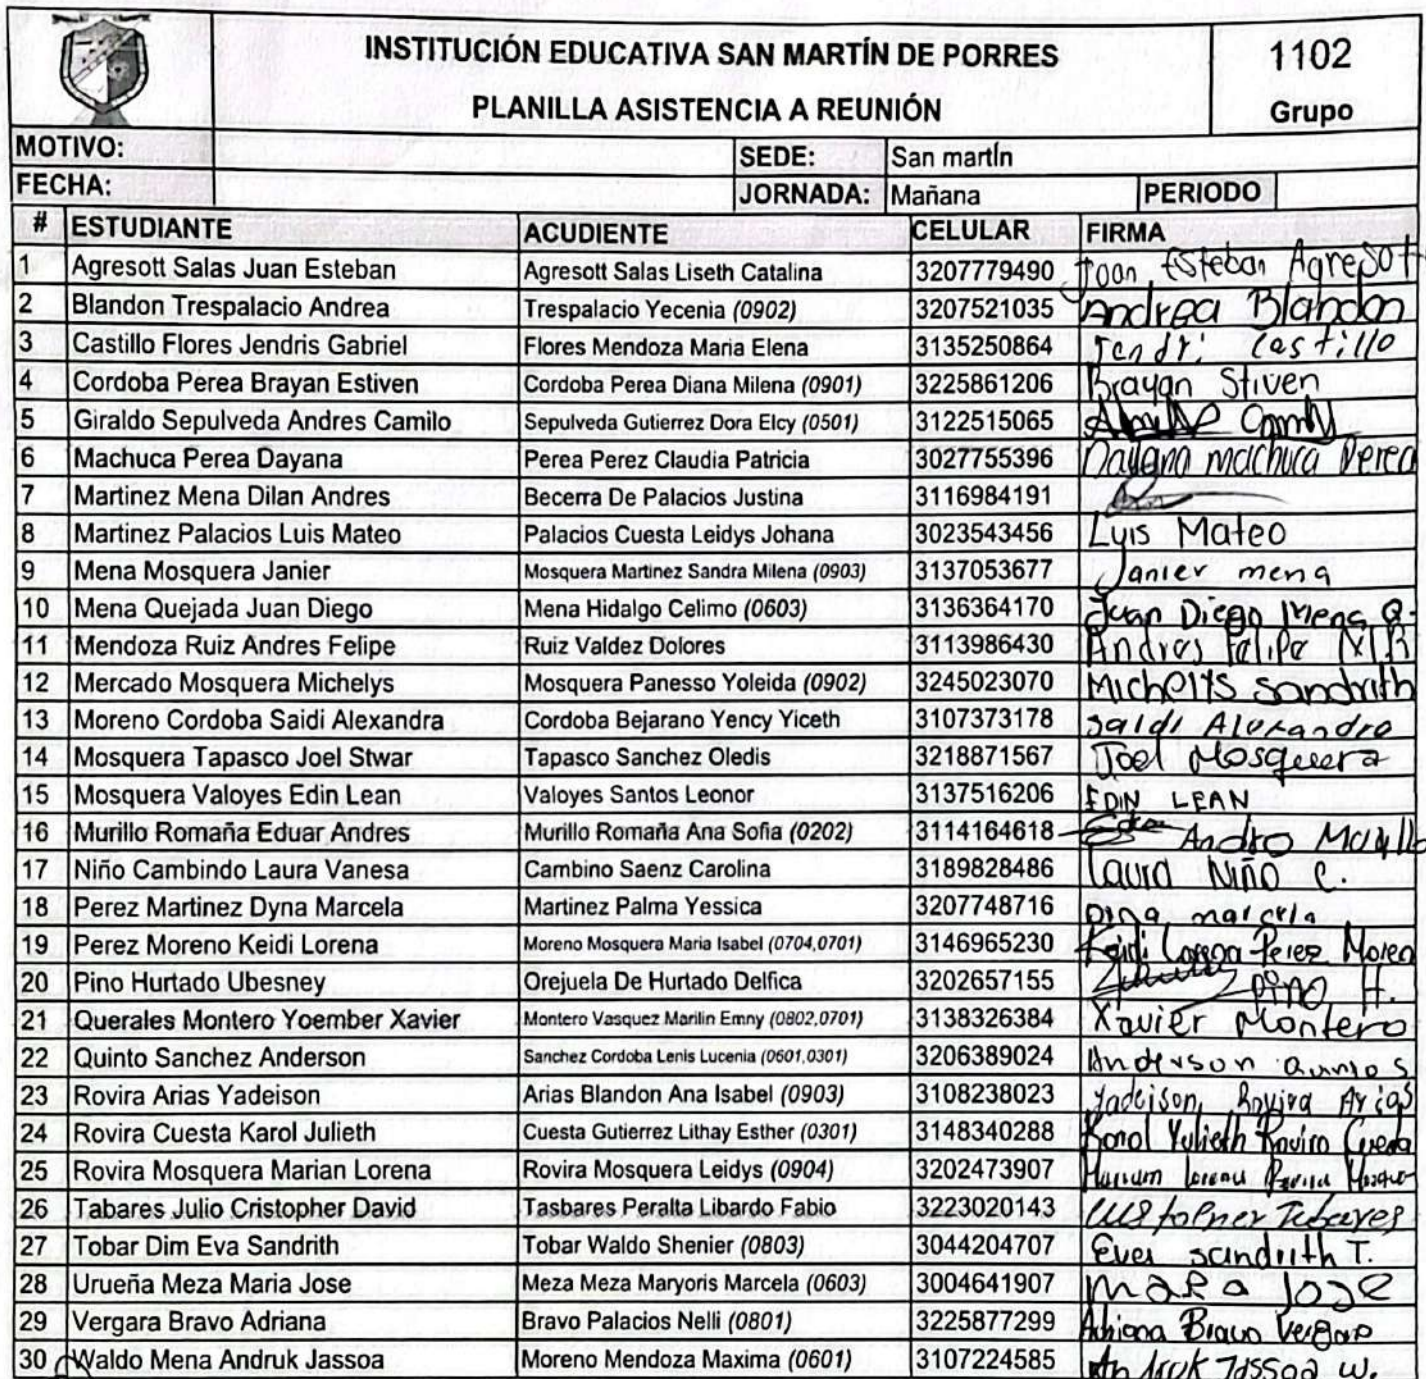 INSTITUCIÓN EDUCATIVA SAN MARTÍN DE PORRES 1102
PLANILLA ASISTENCIA A REUNIÓN Grupo
MOTIVO: SEDE: San martín
FECHA: JORNADA: Mañana PERIODO
# ESTUDIANTE ACUDIENTE CELULAR FIRMA
1 Agresott Salas Juan Esteban Agresott Salas Liseth Catalina 3207779490 Juan Esteban Agresott
2 Blandon Trespalacio Andrea Trespalacio Yecenia (0902) 3207521035 Andrea Blandon
3 Castillo Flores Jendris Gabriel Flores Mendoza Maria Elena 3135250864 Jendri castillo
4 Cordoba Perea Brayan Estiven Cordoba Perea Diana Milena (0901) 3225861206 Brayan Stiven
5 Giraldo Sepulveda Andres Camilo Sepulveda Gutierrez Dora Elcy (0501) 3122515065
6 Machuca Perea Dayana Perea Perez Claudia Patricia 3027755396 Dayana machuca Perea
7 Martinez Mena Dilan Andres Becerra De Palacios Justina 3116984191
8 Martinez Palacios Luis Mateo Palacios Cuesta Leidys Johana 3023543456 Luis Mateo
9 Mena Mosquera Janier Mosquera Martinez Sandra Milena (0903) 3137053677 Janier mena
10 Mena Quejada Juan Diego Mena Hidalgo Celimo (0603) 3136364170 Juan Diego Mena Q.
11 Mendoza Ruiz Andres Felipe Ruiz Valdez Dolores 3113986430 Andres Felipe M.R
12 Mercado Mosquera Michelys Mosquera Panesso Yoleida (0902) 3245023070 Michelys sandrith
13 Moreno Cordoba Saidi Alexandra Cordoba Bejarano Yency Yiceth 3107373178 saidi Alexandra
14 Mosquera Tapasco Joel Stwar Tapasco Sanchez Oledis 3218871567 Joel Mosquera
15 Mosquera Valoyes Edin Lean Valoyes Santos Leonor 3137516206 EDIN LEAN
16 Murillo Romaña Eduar Andres Murillo Romaña Ana Sofia (0202) 3114164618 Murillo
17 Niño Cambindo Laura Vanesa Cambino Saenz Carolina 3189828486 Laura Niño C.
18 Perez Martinez Dyna Marcela Martinez Palma Yessica 3207748716 Dina marcela
19 Perez Moreno Keidi Lorena Moreno Mosquera Maria Isabel (0704,0701) 3146965230 Keidi Lorena Perez Moreno
20 Pino Hurtado Ubesney Orejuela De Hurtado Delfica 3202657155 Pino H.
21 Querales Montero Yoember Xavier Montero Vasquez Marilin Emny (0802,0701) 3138326384 Xavier Montero
22 Quinto Sanchez Anderson Sanchez Cordoba Lenis Lucenia (0601,0301) 3206389024 Anderson S
23 Rovira Arias Yadeison Arias Blandon Ana Isabel (0903) 3108238023 Yadeison Rovira Arias
24 Rovira Cuesta Karol Julieth Cuesta Gutierrez Lithay Esther (0301) 3148340288 Karol Yulieth Rovira Cuesta
25 Rovira Mosquera Marian Lorena Rovira Mosquera Leidys (0904) 3202473907 Lorena Rovira
26 Tabares Julio Cristopher David Tasbares Peralta Libardo Fabio 3223020143 Tabares
27 Tobar Dim Eva Sandrith Tobar Waldo Shenier (0803) 3044204707 Eva sandrith T.
28 Urueña Meza Maria Jose Meza Meza Maryoris Marcela (0603) 3004641907 Jose
29 Vergara Bravo Adriana Bravo Palacios Nelli (0801) 3225877299 Adriana Bravo Vergara
30 Waldo Mena Andruk Jassoa Moreno Mendoza Maxima (0601) 3107224585 Andruk Jassoa w.